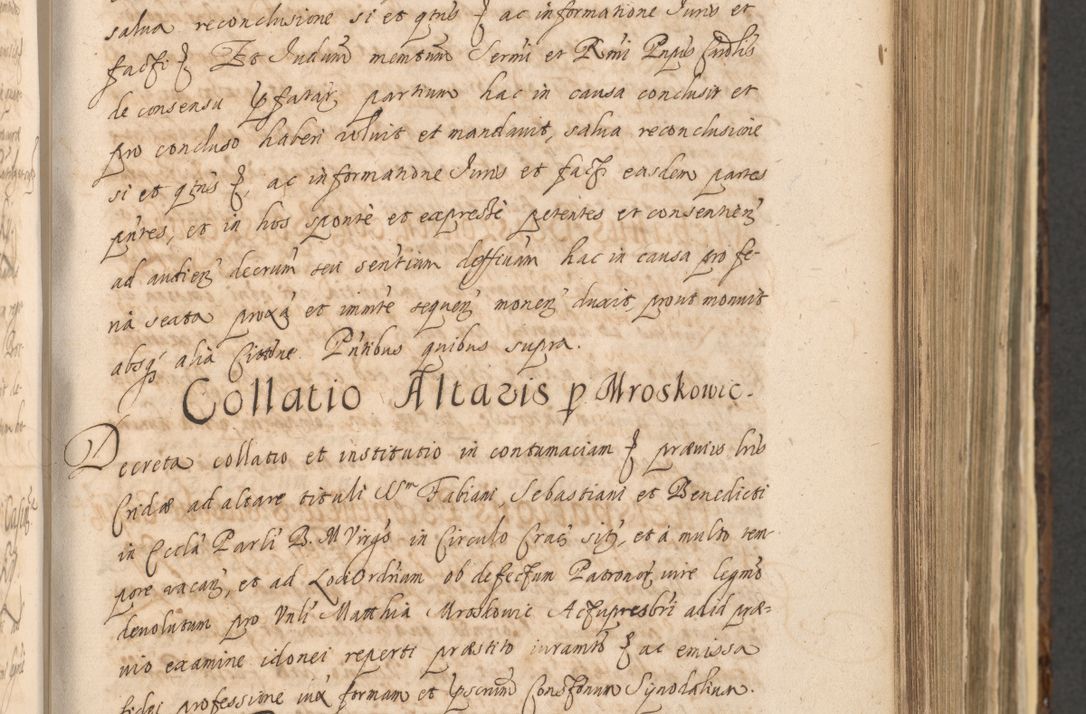 salua reconclusione si et qtus ac informatione Juris et
facti Et Judicium memtum Sermi et Rmi Pnpis Cardlis
de consensu pfatar partium hac in causa conclusit et
pro concluso haberi voluit et mandauit, salua reconclusione
si et qtus, ac informatione Juris et facti easdem partes
pntes, et in hos sponte et expresse petentes et consentien
ad audien decrum seu sentium deffiuam hac in causa pro fe-
ria sexta proxa et immte sequen monen duxit, prout monuit
absq alia Cittone Pntibus quibus supra.
Collatio Altaris p Mroskowic.
Decreta collatio et institutio in contumaciam præuius lris
Cridæ ad altare tituli SSm Fabiani Sebastiani et Benedicti
in Eccla Parli B. M Virgs in Circulo Crac sit, et a multo tem
pore vacan, et ad Loci Ordriam ob defectum Patronor, iure legmo
deuolutum pro Vnli Matthia Mroskowic Actupresbri ad id præ-
uio examine idonei reperti præstito iuramto ac emissa
fidei professione iux formam et pscrum Constonum Synodalium.